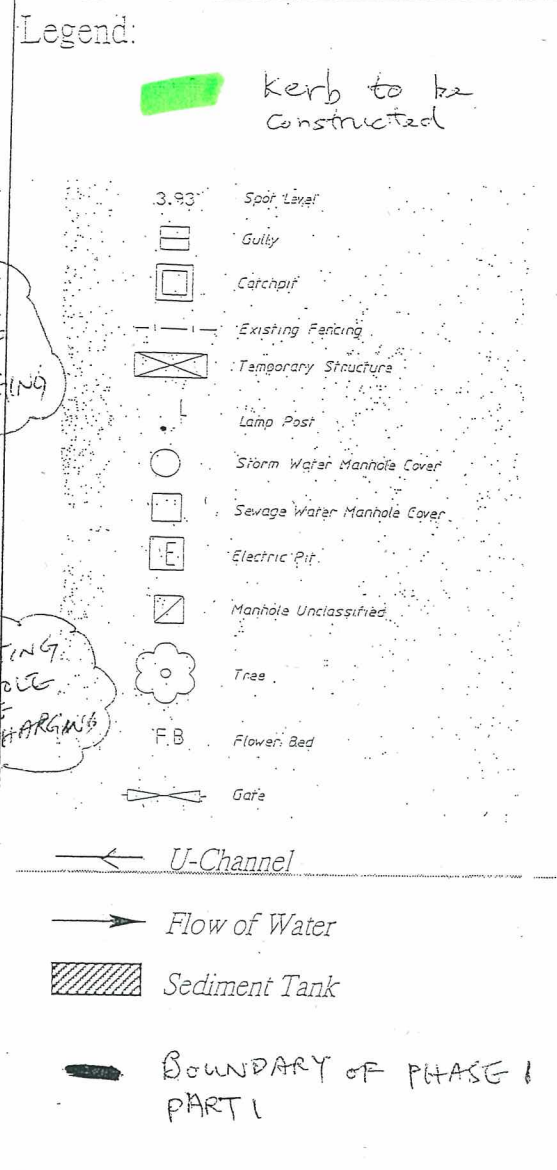 Legend:
Kerb to be
constructed
3.93 Spot Level
Gully
Catchpit
Existing Fencing
ING
Temporary Structure
Lamp Post
Storm Water Manhole Cover
Sewage Water Manhole Cover
E Electric Pit
Manhole Unclassified
TING
Tree
HARGING
F.B Flower Bed
Gate
U-Channel
Flow of Water
Sediment Tank
BOUNDARY OF PHASE 1
PART 1